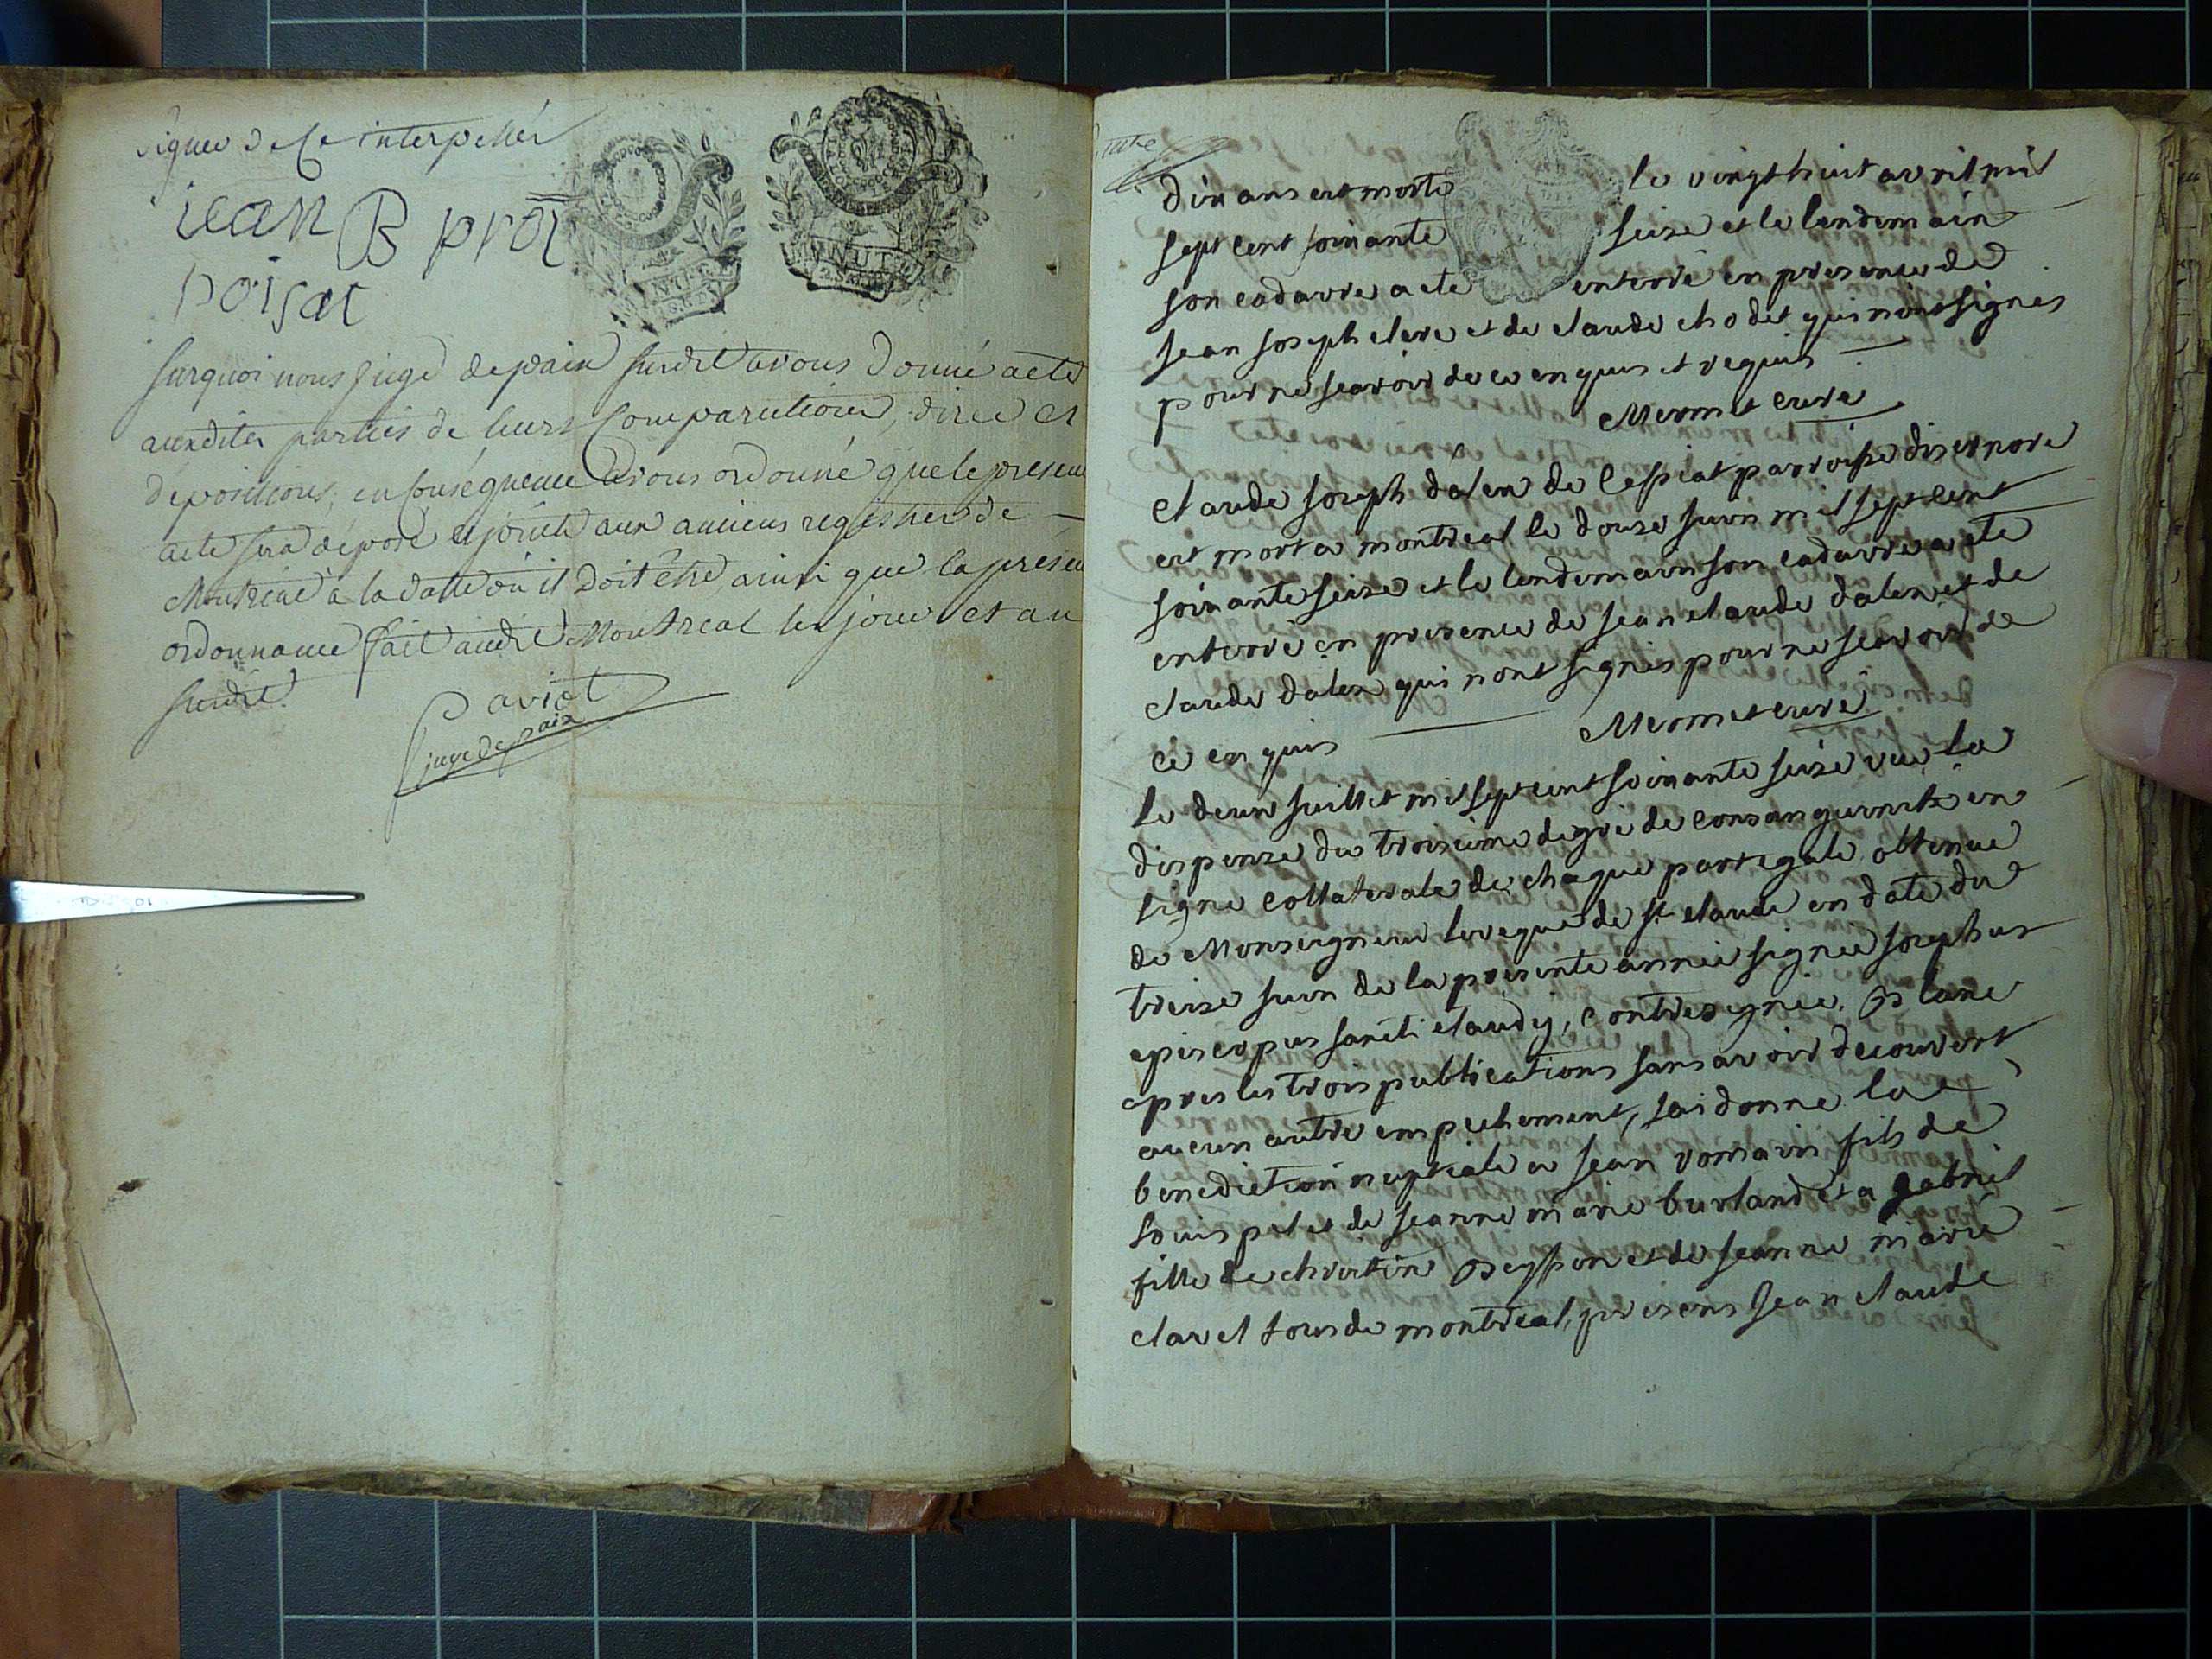 signer de ce interpellés
jean B pros
poisat
MINUT
2 S
surquoi nous juge de paix susdit avons donné acte
auxdites parties de leurs comparutions, dire et
dépositions; en conséquence avons ordonné que le présent
acte sera déposé et joint aux anciens registres de
Montréal à la datte où il doit être ainsi que la présen
ordonnance fait audit Montréal les jour et an
susdit.
Gaviot
juge de paix
dix ans est morte le vingt huit avril mil
sept cent soixante seize et le lendemain
son cadavre a ete enterré en presence de
jean joseph clere et de claude chodet qui n'ont signes
pour ne scavoir de ce enquis et requis
Mermet curé
claude joseph dalen de lespiat parroisse disernore
est mort a montreal le douze juin mil sept cent
soixante seize et le lendemain son cadavre a ete
enterré en presence de jean claude dalen et de
claude dalen qui n'ont signes pour ne scavoir de
ce enquis
Mermet curé
le deux juillet mil sept cent soixante seize vue la
dispense du troisieme degré de consanguinite en
ligne collaterale de chaque part egale obtenue
de Monseigneur leveque de st claude en date du
treize juin de la presente année signée josephus
episcopus sancti claudy, contresignée
apres les trois publications sans avoir decouvert
aucun autre empechement, jai donné la
benediction nuptiale a jean romain fils de
louis pelet de jeanne marie burland et a gabriel
fille de et de jeanne marie
claret tous de montreal, presens jean claude